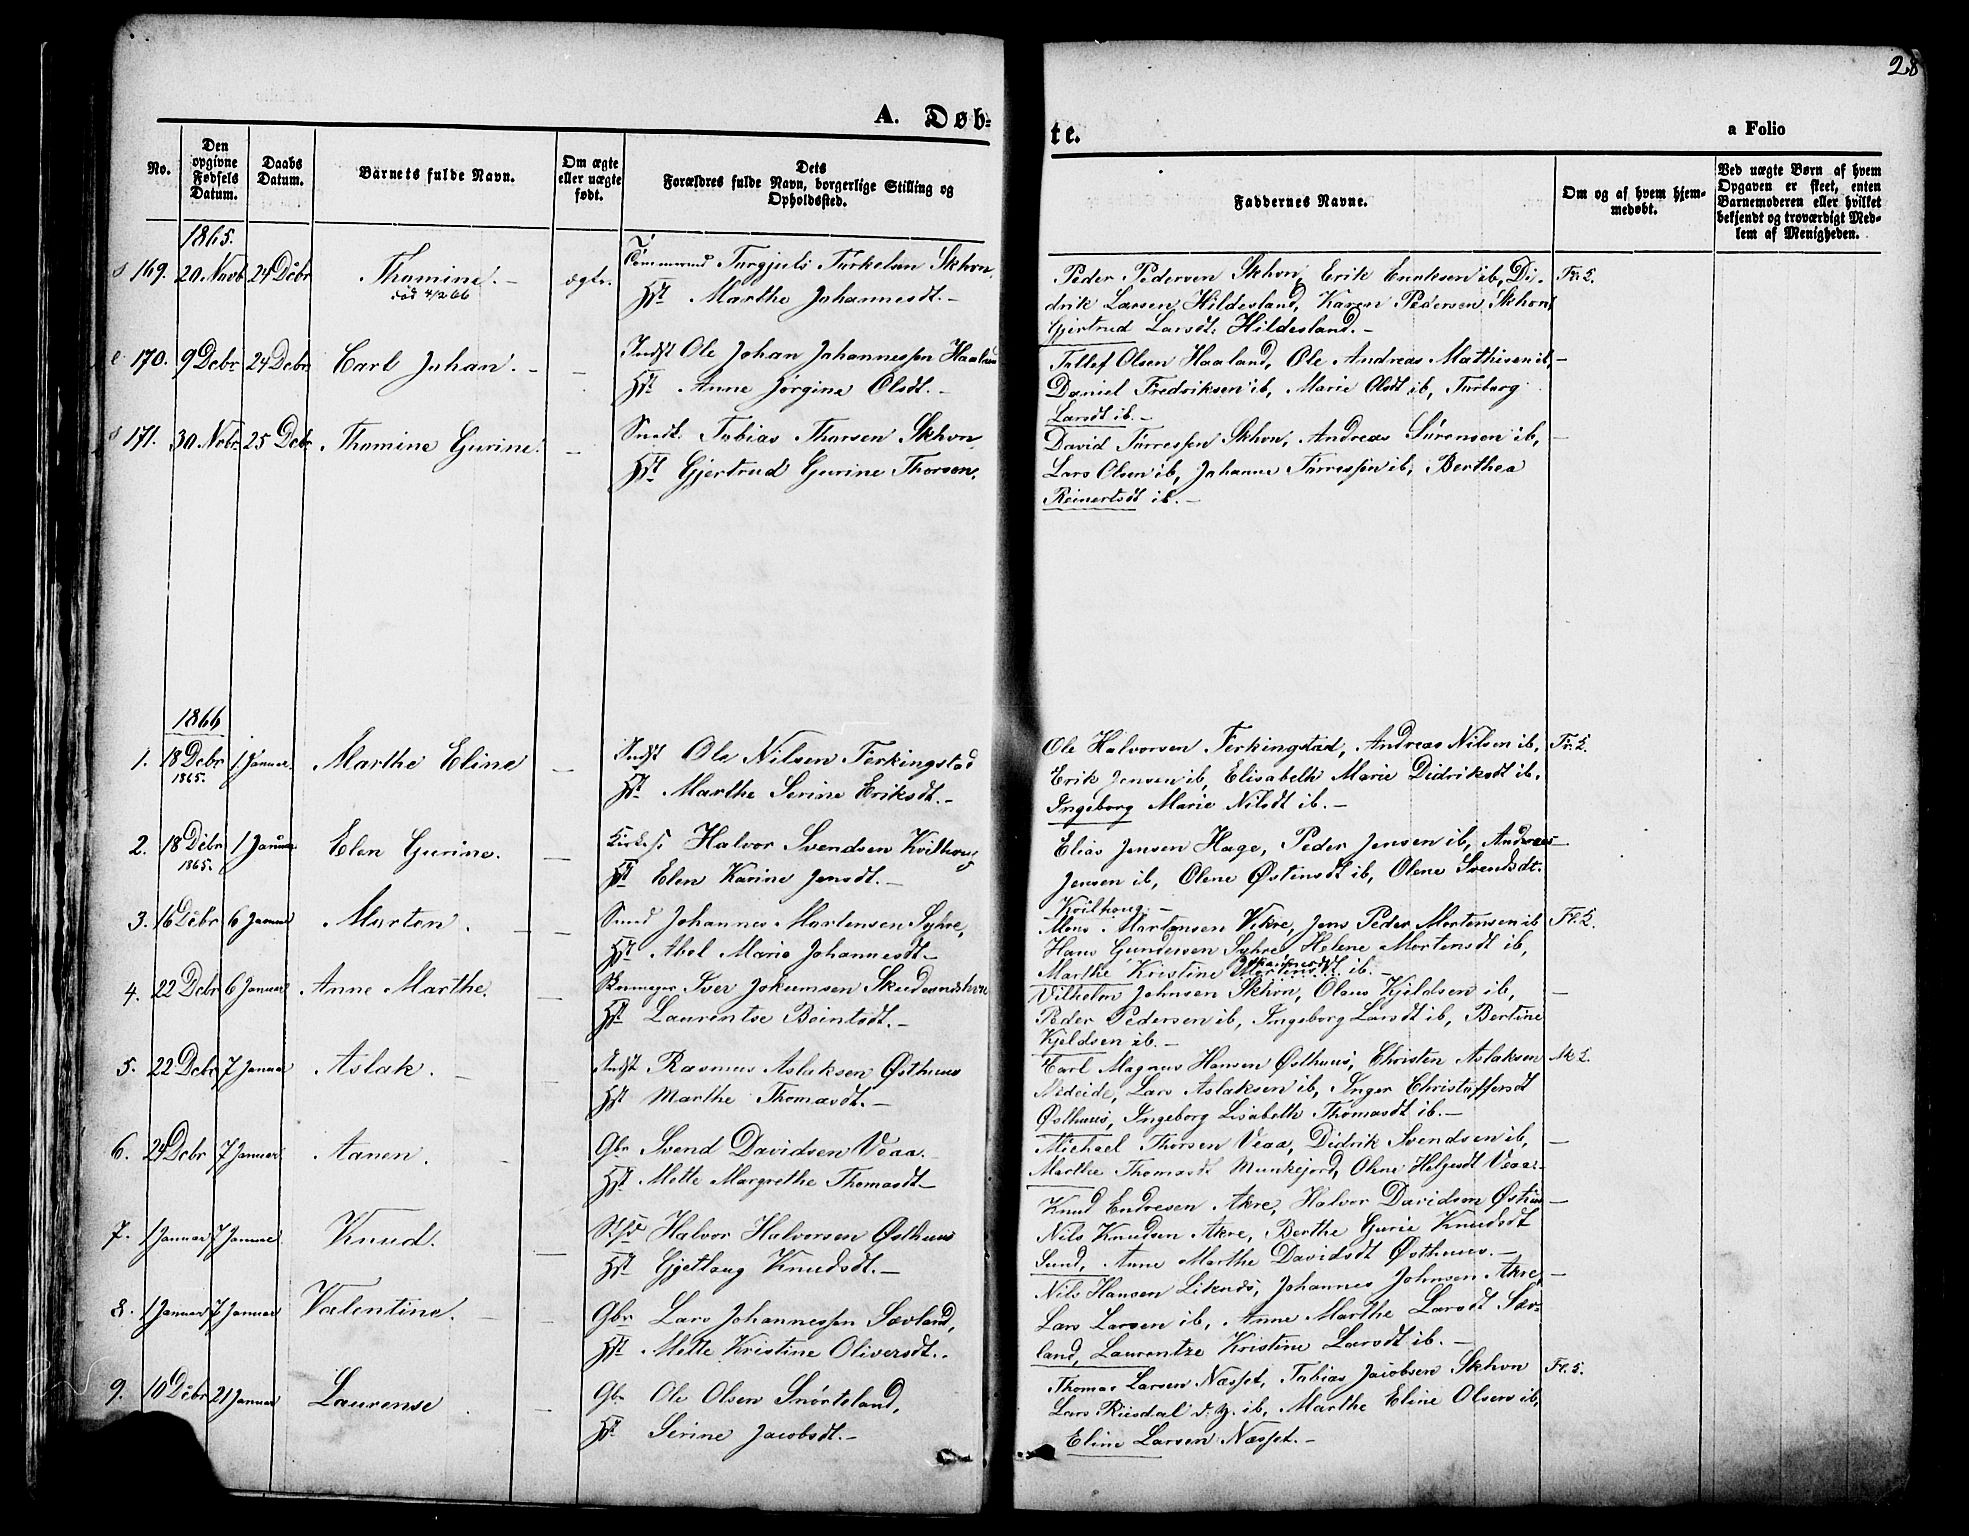 28
A. Døb-
te.
a Folio
No.
Den opgivne Fødsels Datum.
Daabs Datum.
Barnets fulde Navn.
Om ægte eller uægte født.
Dets Forældres fulde Navn, borgerlige Stilling og Opholdssted.
Faddernes Navne.
Om og af hvem hjemmedøbt.
Ved uægte Børn af hvem Opgaven er skeet, enten Barnemoderen eller hvilket bekjendt og troværdigt Medlem af Menigheden.
1865.
169. 20. Novb 24 Debr Thomine. - ægte. Tømmermd Torgjuls Tørkelsen Skhvn.
død 4/2 66
Hst Marthe Johannesdt. -
Peder Pedersen Skhvn, Erik Eriksen ib, Di-
drik Larsen Hildesland, Karen Pedersen Skhvn,
Gjertrud Larsdt. Hildesland. -
Fr. S.
170. 9 Debr 24 Debr Carl Johan. - - Indst Ole Johan Johannessen Haaland
Hst Anne Jorgine Olsdt. -
Tollef Olsen Haaland, Ole Andreas Mathisen ib, -
Daniel Fredriksen ib, Marie Olsdt ib, Torborg
Larsdt ib. -
171. 30 Nobr. 25 Debr Thomine Gurine. - Smed. Tobias Thorsen Skhvn
Hst Gjertrud Gurine Thorsen.
David Tørressen Skhvn, Andreas Sørensen ib, -
Lars Olsen ib, Johanne Tørressen ib, Berthea
Reinertsdt ib. -
1866
1. 18 Debr 1 Januar. Marthe Eline - Indst Ole Nilsen Ferkingstad
1865.
Hst Marthe Serine Eriksdt. -
Ole Halvorsen Ferkingstad, Andreas Nilsen ib, Fr. S.
Erik Jensen ib, Elisabeth Marie Didriksdt ib.
Ingeborg Marie Nilsdt ib. -
2. 18 Debr 1 Januar Elen Gurine. - Halvor Svendsen Kvilhoug
1865.
Hst Elen Karine Jensdt. -
Elias Jensen Hage, Peder Jensen ib, Andreas -
Jensen ib, Olene Østensdt ib, Olene Svendsdt.
Kvilhoug. -
3. 16 Debr 6 Januar Morten. - - Smed Johannes Mortensen Syhre,
Hst Abel Marie Johannesdt. -
Mons Mortensen Vikre, Jens Peder Mortensen ib Fr. S.
Hans Gundersen Syhre Helene Mortensdt ib,
Marthe Kristine Mortensdt. ib. -
4. 22 Debr 6 Januar Anne Marthe. - Iver Jokumsen Skudesneshvn
Hst Laurentse Beintsdt. -
Vilhelm Johnsen Skhvn, Olaus Kjeldsen ib, -
Peder Pedersen ib, Ingeborg Larsdt ib, Bertine
Kjeldsen ib. -
5. 22 Debr 7 Januar Aslak. - - Indst Rasmus Aslaksen Østhuus
Hst Marthe Thomasdt. -
Carl Magnus Hansen Østhuus, Christen Aslaksen
Medeide, Lars Aslaksen ib, Inger Christoffersdt
Østhuus, Ingeborg Lisabeth Thomasdt ib. -
6. 24 Debr 7 Januar Aanen. - - Gbr Svend Davidsen Veaa. -
Hst Mette Margrethe Thomasdt -
Michael Thorsen Veaa, Didrik Svendsen ib, -
Marthe Thomasdt Munkejord, Olene Helgesdt Veaa. -
7. 1 Januar 7 Januar. Knud. - Halvor Halvorsen Østhuus
Hst Gjetlaug Knudsdt. -
Knud Endresen Akre, Halvor Davidsen Østhuus -
Nils Knudsen Akre, Berthe Gurie Knudsdt
Sund, Anne Marthe Davidsdt Østhuus. -
8. 1 Januar 7 Januar Valentine. - - Gbr Lars Johannessen Sævland,
Hst Mette Kristine Oliversdt.
Nils Hansen Liknes, Johannes Johnsen Akre, -
Lars Larsen ib, Anne Marthe Larsdt Sæv-
land, Laurentze Kristine Larsdt ib. -
9. 10 Debr 21 Januar Laurense . - Gbr Ole Olsen Snørteland,
Hst Serine Jacobsdt. -
Thomas Larsen Næsset, Tobias Jacobsen Skhvn Fr. S.
Lars Risdal d. y. ib, Marthe Eline Olsen ib,
Eline Larsen Næsset. -